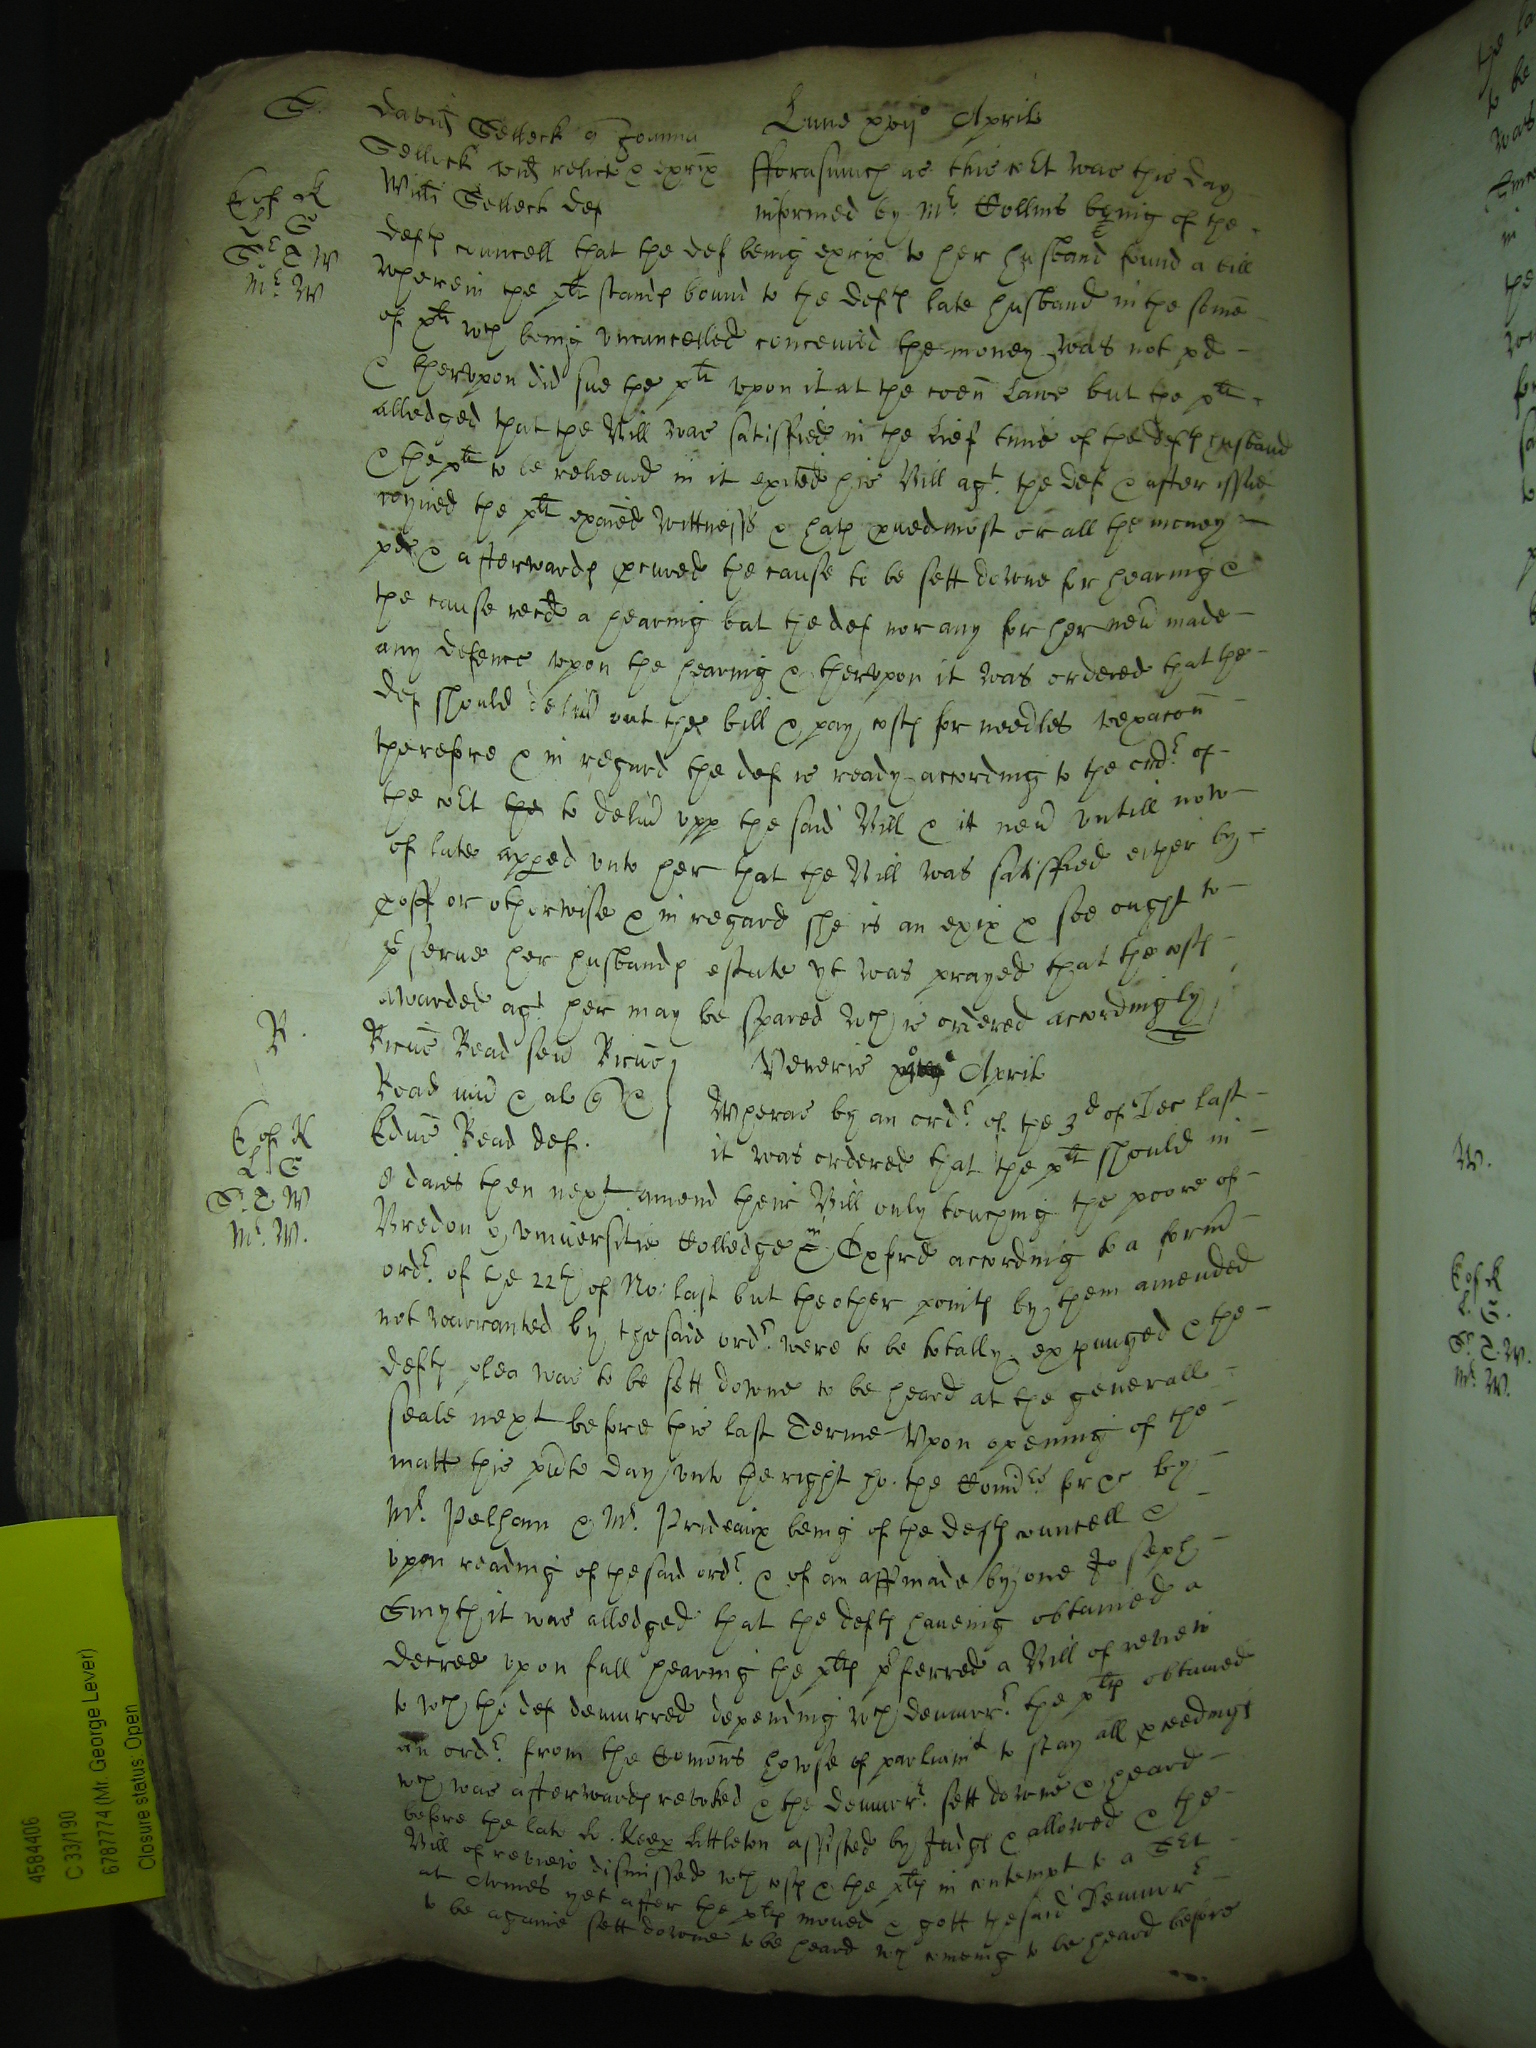 S.
David Selleck q Joanna
Selleck wid relict & exrix
Willi Selleck def
Lune xvij° Aprilis
E of K
L S
Sr T W
Mr W
fforasmuch as this coᵗ was this day
informed by Mr Collins being of the
defts councell that the def being exrix to her husband found a bill
wherein the plt stands bound to the defts late husband in the some
of xli wch being uncancelled conceived the money was not pd
& therupon did sue the plt upon it at the coen Lawe but the plt
alledged that the Bill was satisfied in the Lief time of the defts husband
& the plt to be relieued in it exited his Bill agt. the def & after issue
ioyned the plt exaied wittnesses & hath pued most or all the money
pd & afterwards pcured the cause to be sett downe for hearing &
the cause recd a hearing but the def nor any for her neu made
any defence upon the hearing & therupon it was ordered that the
def should deliu out the bill & pay costs for needles vexacon
therefore & in regard the def is ready according to the ordr of
the coᵗ the to deliu upp the said Bill & it neu untill now
of late apped unto her that the Bill was satisfied either by
poff or otherwise & in regard she is an exix & soe ought to
pserue her husbands estate yt was prayed that the costs
awarded agt her may be spared wch is ordered accordingly
R.
Ricus Read seu Ricus
Read iun & al q &
Edus Read def.
Veneris Aprilis
E of K
L S
Sr. T W
Mr. W.
Wheras by an ordr. of the 3d of Dec last
it was ordered that the plt should in
8 daies then next amend their Bill only touching the poore of
Bredon & Universitie Colledge in Oxford according to a form
ordr. of the 22th of No: last but the other points by them amended
not warranted by the said ordr. were to be totally expunged & the
defts plea was to be sett downe to be heard at the generall
seale next before this last Terme Upon opening of the
matt this pnte day unto the right ho. the Comrs for &c by
Mr. Pelham & Mr. Prideaux being of the defts councell &
upon reading of the said ordr. & of an aff made by one Joseph
Smyth it was alledged that the defts haueing obtained a
decree upon full hearing the plts pferred a Bill of reviw
to wch the def demurred depending wch demurr. the plts obtained
an ordr. from the Comons howse of parliamt to stay all pceedings
wch was afterwards revoked & the demurr. sett downe & heard
before the late Lo. Keep Littleton assisted by Judgs & allowed & the
Bill of reviewe dismissed wth costs & the plts in contempt to a Sᵗ
at Armes yet after the plts moued & gott the said Demurr
to be againe sett downe to be heard wch comeing to be heard before
4584406
C 33/190
6787774 (Mr. George Lever)
Closure status: Open
W.
E of K
L. S.
Sr. T. W.
Mr. W.